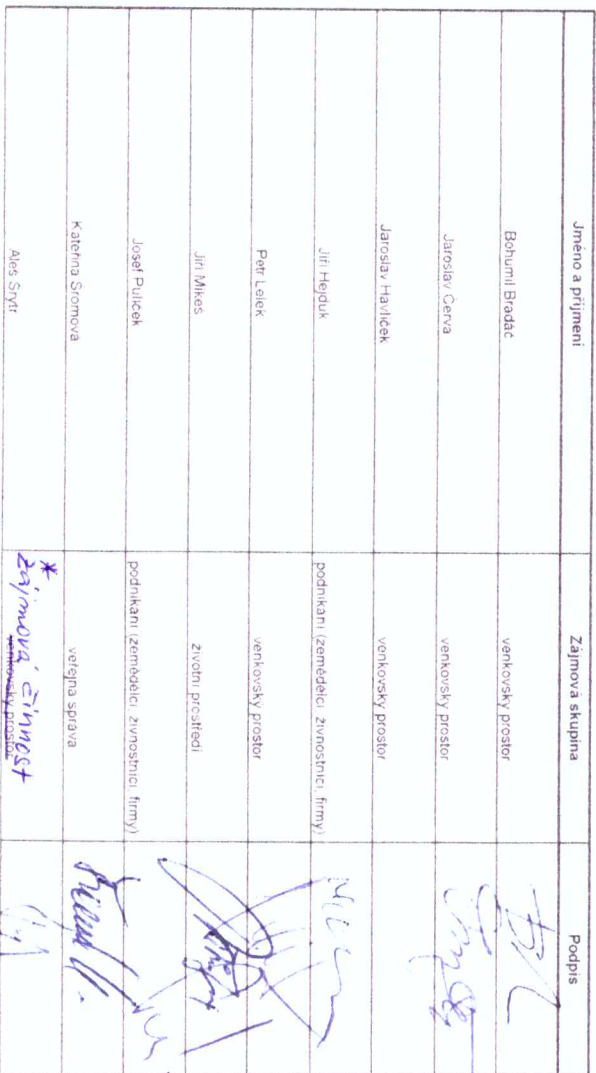 Jméno a příjmení Zájmová skupina Podpis
Bohumil Bradáč venkovský prostor
Jaroslav Červa venkovský prostor
Jaroslav Havlíček venkovský prostor
Jiří Hejduk podnikání (zemědělci, živnostníci, firmy)
Petr Lelek venkovský prostor
Jiří Mikeš životní prostředí
Josef Pulíček podnikání (zemědělci, živnostníci, firmy)
Kateřina Šromová veřejná správa
*
zájmová činnost
Aleš Srytr venkovský prostor